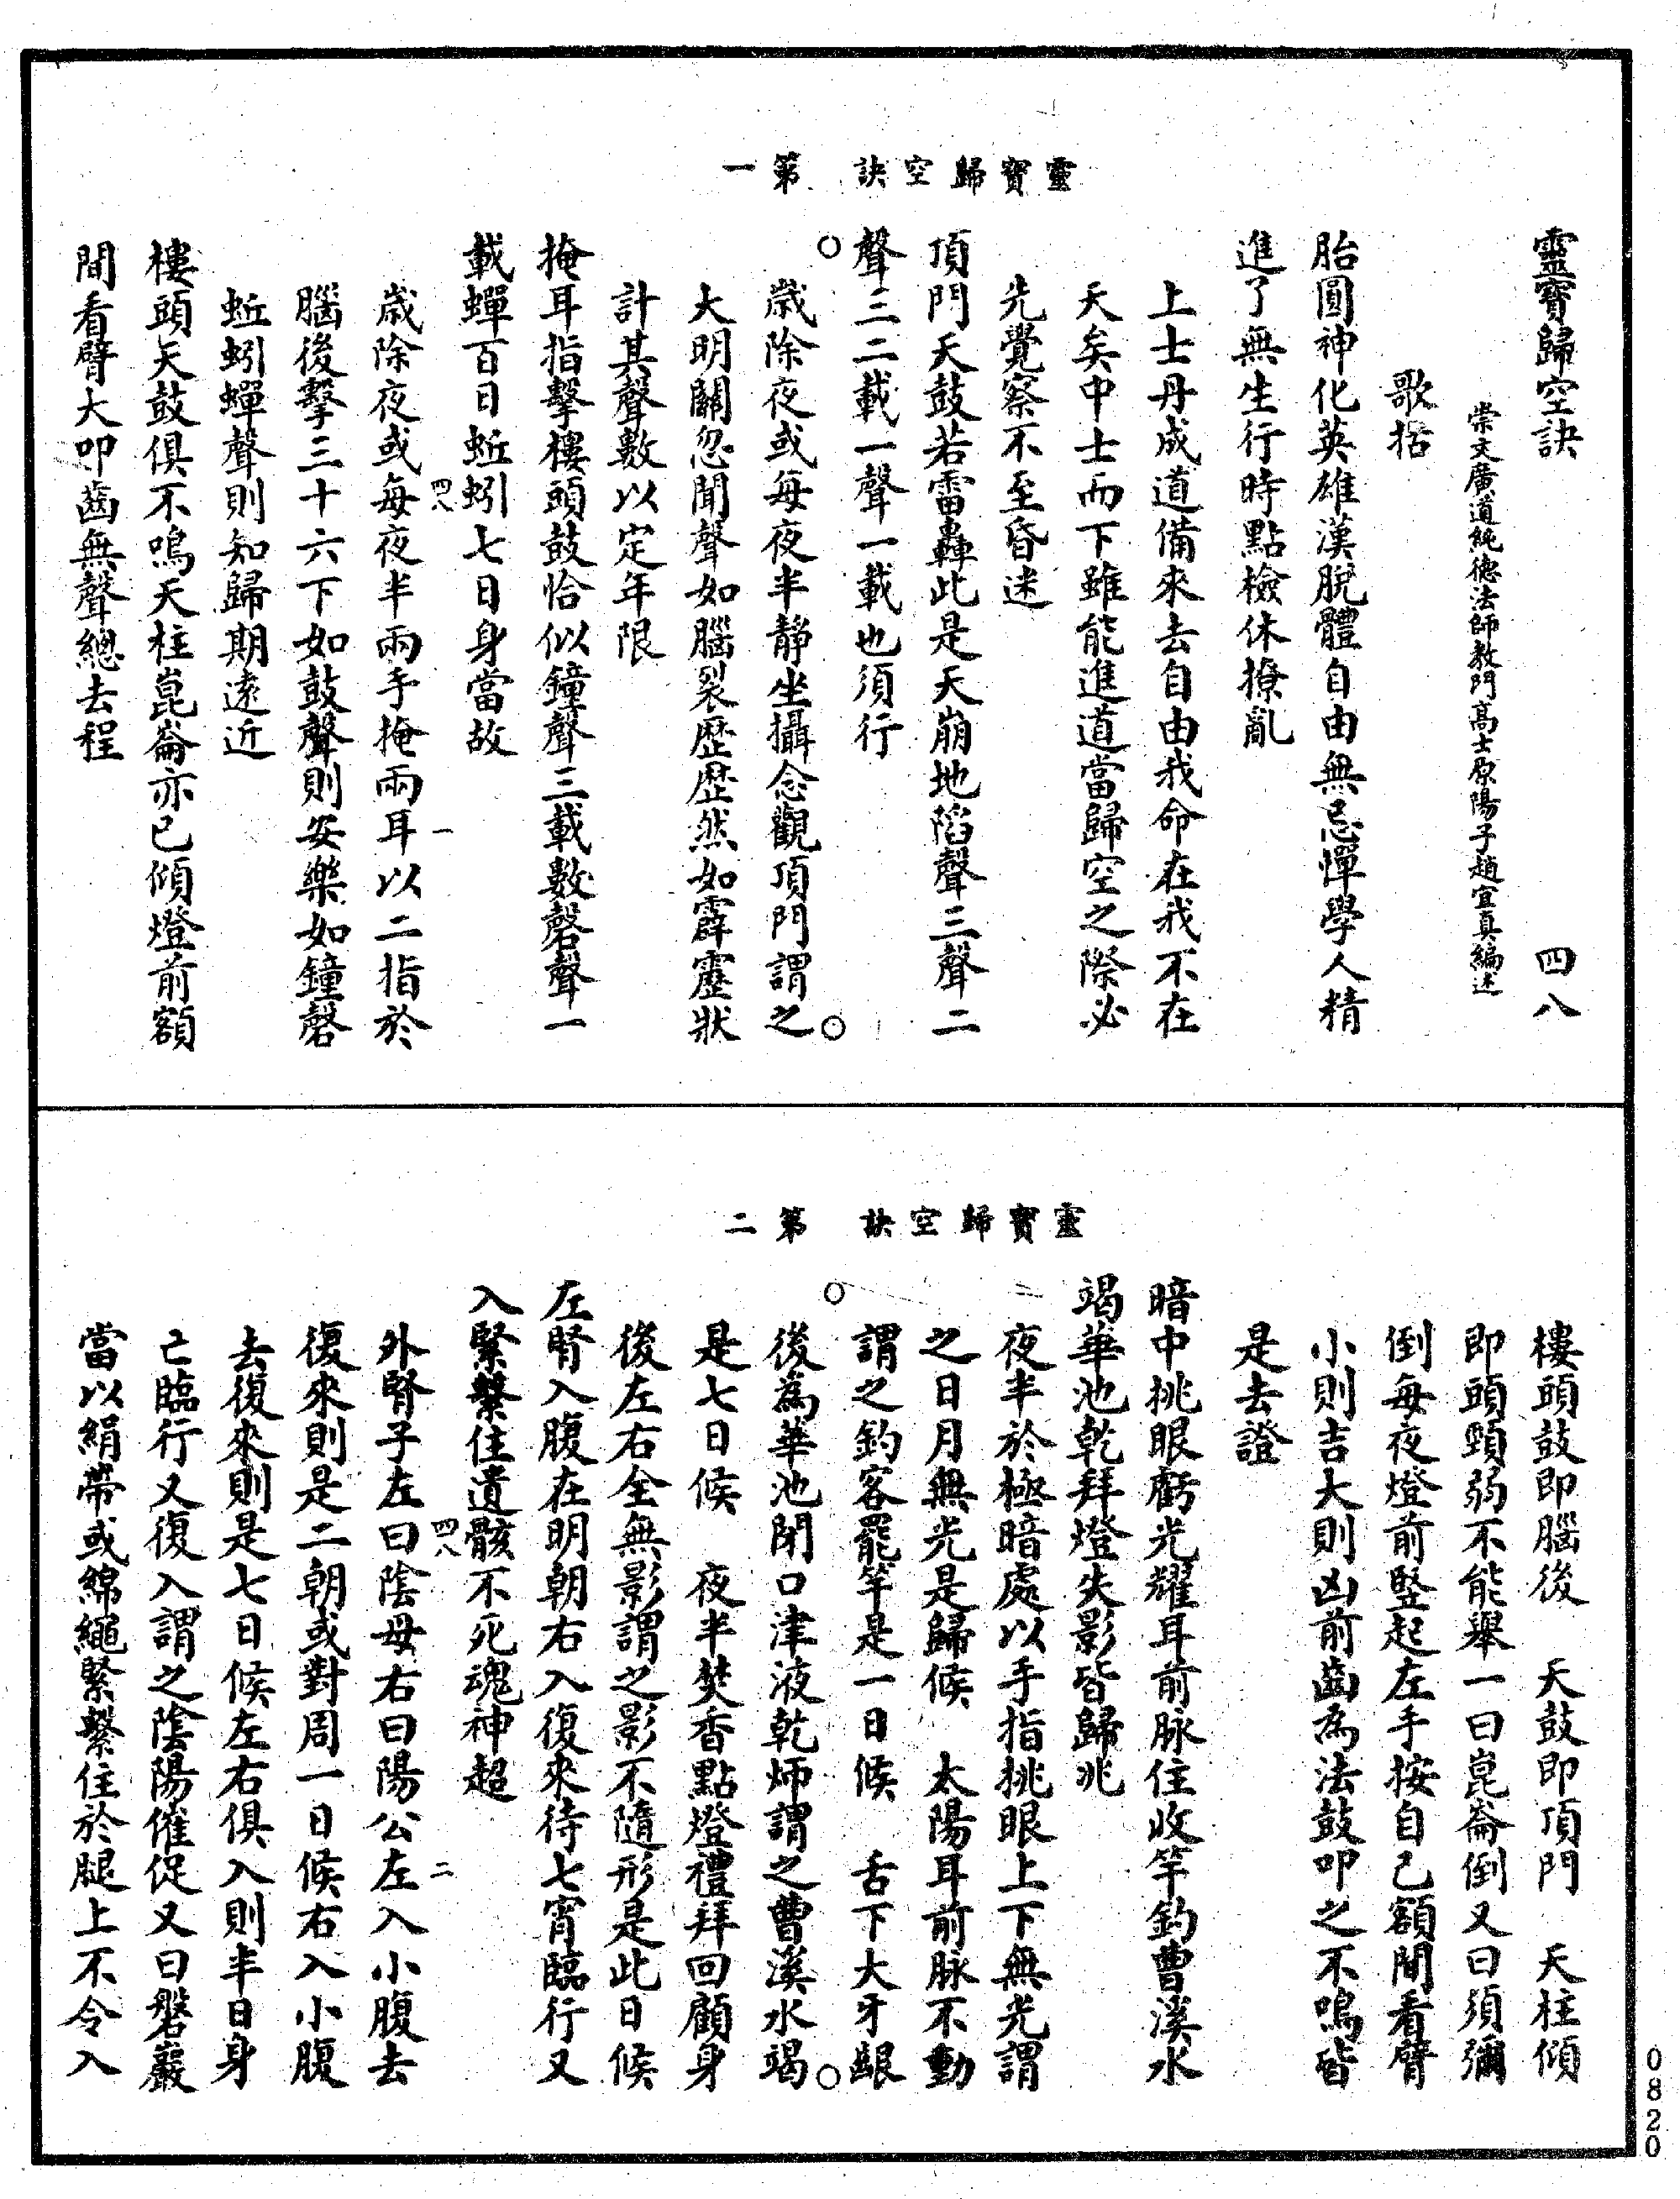 靈寶歸空訣　第一
靈寶歸空訣　四八
崇文廣道純德法師教門高士原陽子趙宜真編述
歌括
胎圓神化英雄漢脫體自由無忌憚學人精
進了無生行時點檢休撩亂
上士丹成道備來去自由我命在我不在
天矣中士而下雖能進道當歸空之際必
先覺察不至昏迷
頂門天鼓若雷轟此是天崩地陷聲三聲二
聲三二載一聲一載也須行
歲除夜或每夜半靜坐攝念觀頂門謂之
大明關忽聞聲如腦裂歷歷然如霹靂狀
計其聲數以定年限
掩耳指擊樓頭鼓恰似鐘聲三載數磬聲一
載蟬百日蚯蚓七日身當故
歲除夜或每夜半兩手掩兩耳以二指於
腦後擊三十六下如鼓聲則安樂如鐘磬
蚯蚓蟬聲則知歸期遠近
樓頭天鼓俱不鳴天柱崑崙亦已傾燈前額
間看臂大叩齒無聲總去程
四八　一
靈寶歸空訣　第二
樓頭鼓即腦後　天鼓即頂門　天柱傾
即頭頸弱不能舉一曰崑崙倒又曰須彌
倒每夜燈前竪起左手按自己額間看臂
小則吉大則凶前齒為法鼓叩之不鳴皆
是去證
暗中挑眼虧光耀耳前脉住收竿釣曹溪水
竭華池乾拜燈失影皆歸兆
夜半於極暗處以手指挑眼上下無光謂
之日月無光是歸候　太陽耳前脉不動
謂之釣客罷竿是一日候　舌下大牙齦
後為華池閉口津液乾㶧謂之曹溪水竭
是七日候　夜半焚香點燈禮拜回顧身
後左右全無影謂之影不隨形是此日候
左腎入腹在明朝右入復來待七宵臨行又
入緊繫住遺骸不死魂神超
外腎子左曰陰母右曰陽公左入小腹去
復來則是二朝或對周一日候右入小腹
去復來則是七日候左右俱入則半日身
亡臨行又復入謂之陰陽催促又曰磐巖
當以絹帶或綿繩緊繫住於腿上不令入
四八　二
0820